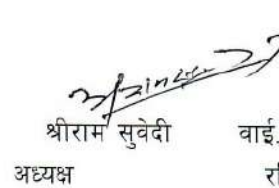 श्रीराम सुवेदी वाई.
अध्यक्ष